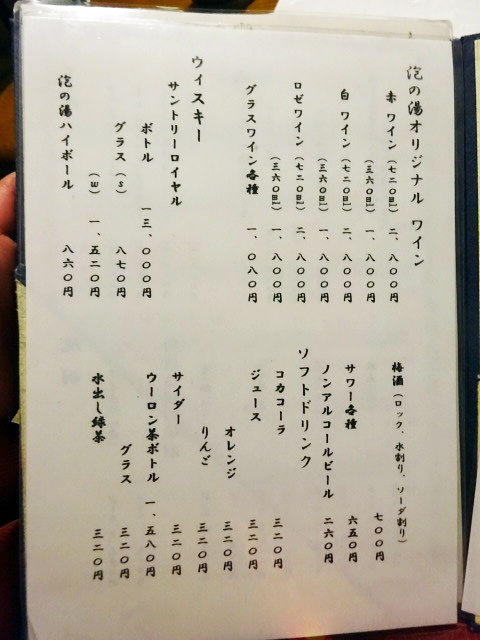 泡の湯オリジナル ワイン
赤 ワイン (七二〇㎖) 二、八〇〇円
(三六〇㎖) 一、八〇〇円
白 ワイン (七二〇㎖) 二、八〇〇円
(三六〇㎖) 一、八〇〇円
ロゼワイン (七二〇㎖) 二、八〇〇円
(三六〇㎖) 一、八〇〇円
グラスワイン各種 一、〇八〇円
ウィスキー
サントリーロイヤル
ボトル 一三、〇〇〇円
グラス (s) 八七〇円
(w) 一、五二〇円
泡の湯ハイボール 八六〇円
梅酒 (ロック、水割り、ソーダ割り)
七〇〇円
サワー各種 六五〇円
ノンアルコールビール 二六〇円
ソフトドリンク
コカコーラ 三二〇円
ジュース 三二〇円
オレンジ 三二〇円
りんご 三二〇円
サイダー 三二〇円
ウーロン茶ボトル 一、五八〇円
グラス 三二〇円
水出し緑茶 三二〇円